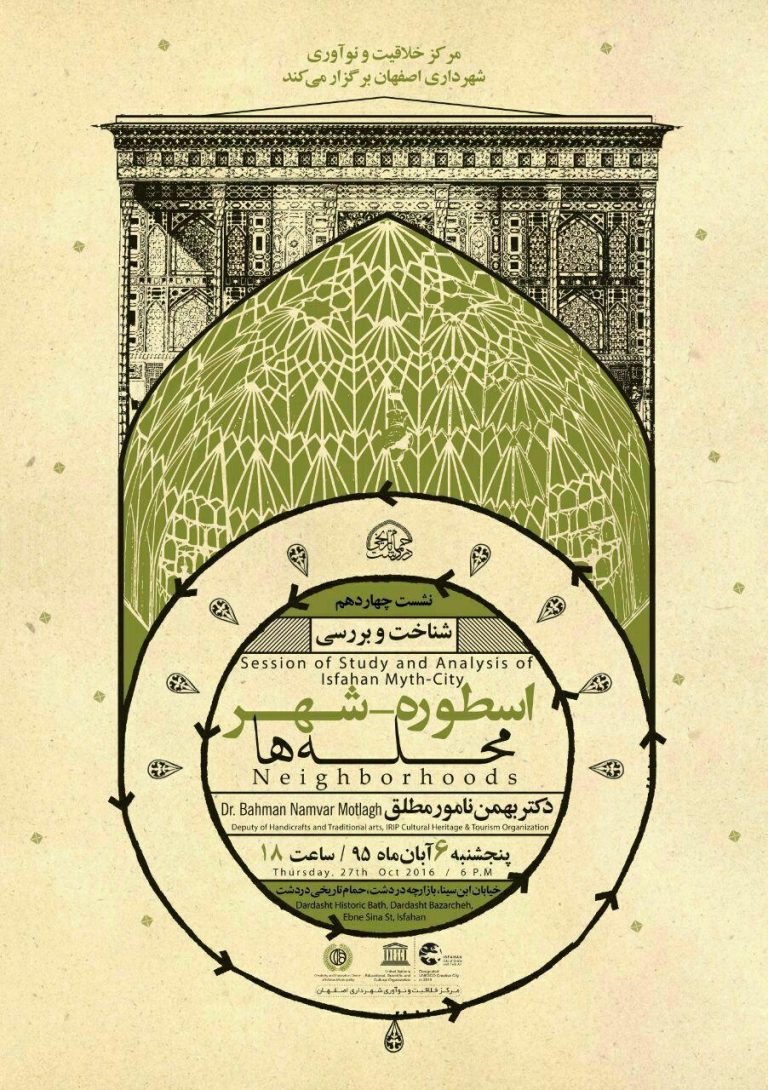 مرکز خلاقیت و نوآوری
شهرداری اصفهان برگزار می‌کند
حمام تاریخی دردشت
نشست چهاردهم
شناخت و بررسی
Session of Study and Analysis of
Isfahan Myth-City
اسطوره-شهر
محله‌ها
Neighborhoods
Dr. Bahman Namvar Motlagh دکتر بهمن نامور مطلق
Deputy of Handicrafts and Traditional arts, IRIP Cultural Heritage & Tourism Organization
پنجشنبه ۶ آبان‌ماه ۹۵ / ساعت ۱۸
Thursday, 27th Oct 2016 / 6 P.M
خیابان ابن سینا، بازارچه دردشت، حمام تاریخی دردشت
Dardasht Historic Bath, Dardasht Bazarcheh,
Ebne Sina St, Isfahan
United Nations
Educational, Scientific and
Cultural Organization
ISFAHAN
Designated
UNESCO Creative City
in 2015
مرکز خلاقیت و نوآوری شهرداری اصفهان